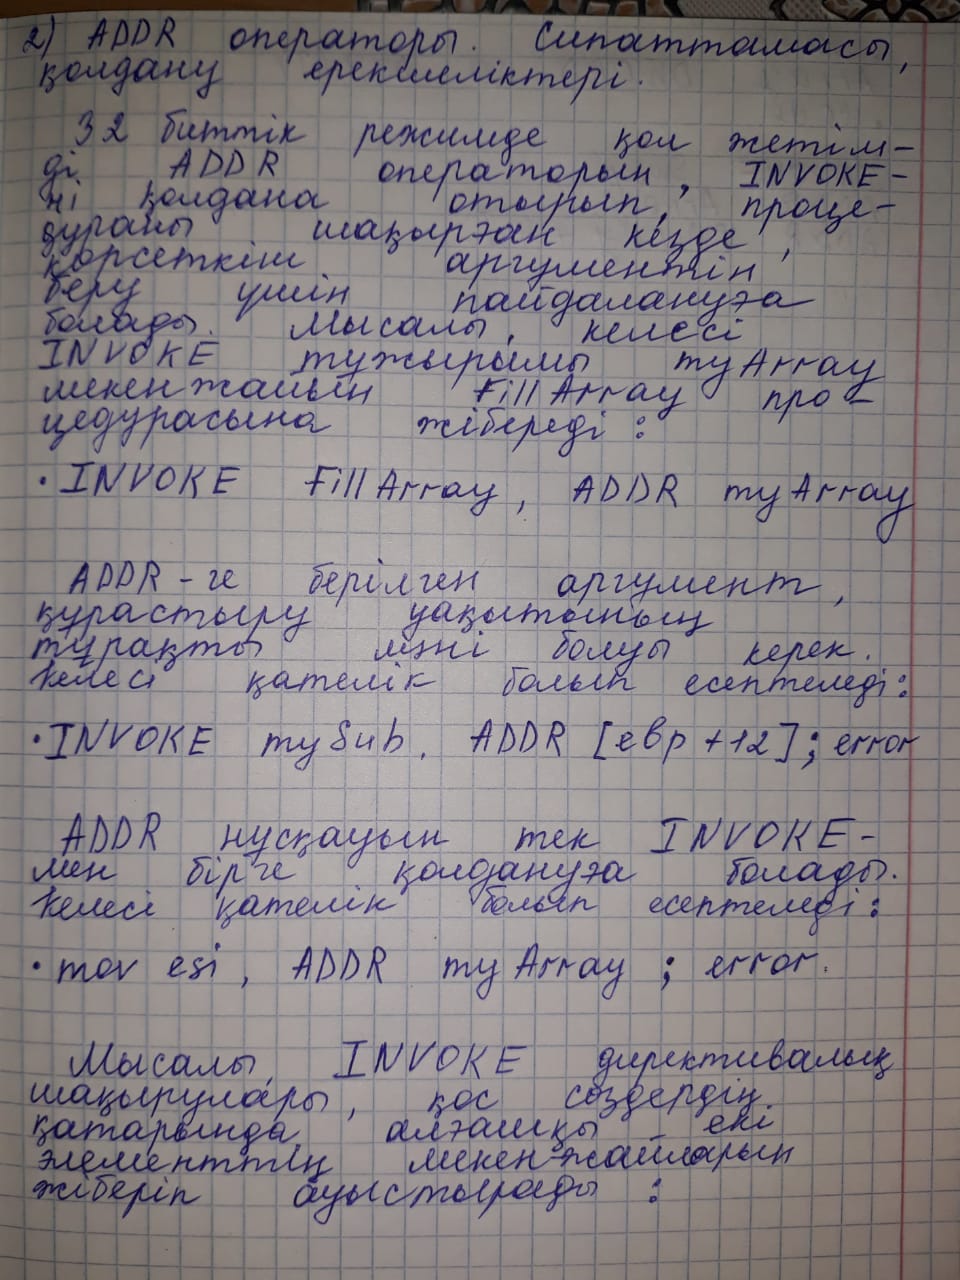 2) ADDR операторы. Сипаттамасы,
қолдану ерекшеліктері.
32 биттік режимде қол жетім-
ді ADDR операторын, INVOKE-
ні қолдана отырып, проце-
дураны шақырған кезде,
көрсеткіш аргументін
беру үшін пайдалануға
болады. Мысалы, келесі
INVOKE тұжырымы myArray
мекенжайын FillArray про-
цедурасына жібереді:
• INVOKE FillArray, ADDR myArray
ADDR-ге берілген аргумент,
құрастыру уақытының
тұрақты мәні болуы керек.
Келесі қателік болып есептеледі:
• INVOKE mySub, ADDR [ebp+12]; error
ADDR нұсқауын тек INVOKE-
мен бірге қолдануға болады.
Келесі қателік болып есептеледі:
• mov esi, ADDR myArray ; error.
Мысалы, INVOKE директивалық
шақырулары, қос сөздердің
қатарында, алғашқы екі
элементтің мекен-жайларын
жіберіп ауыстырады :